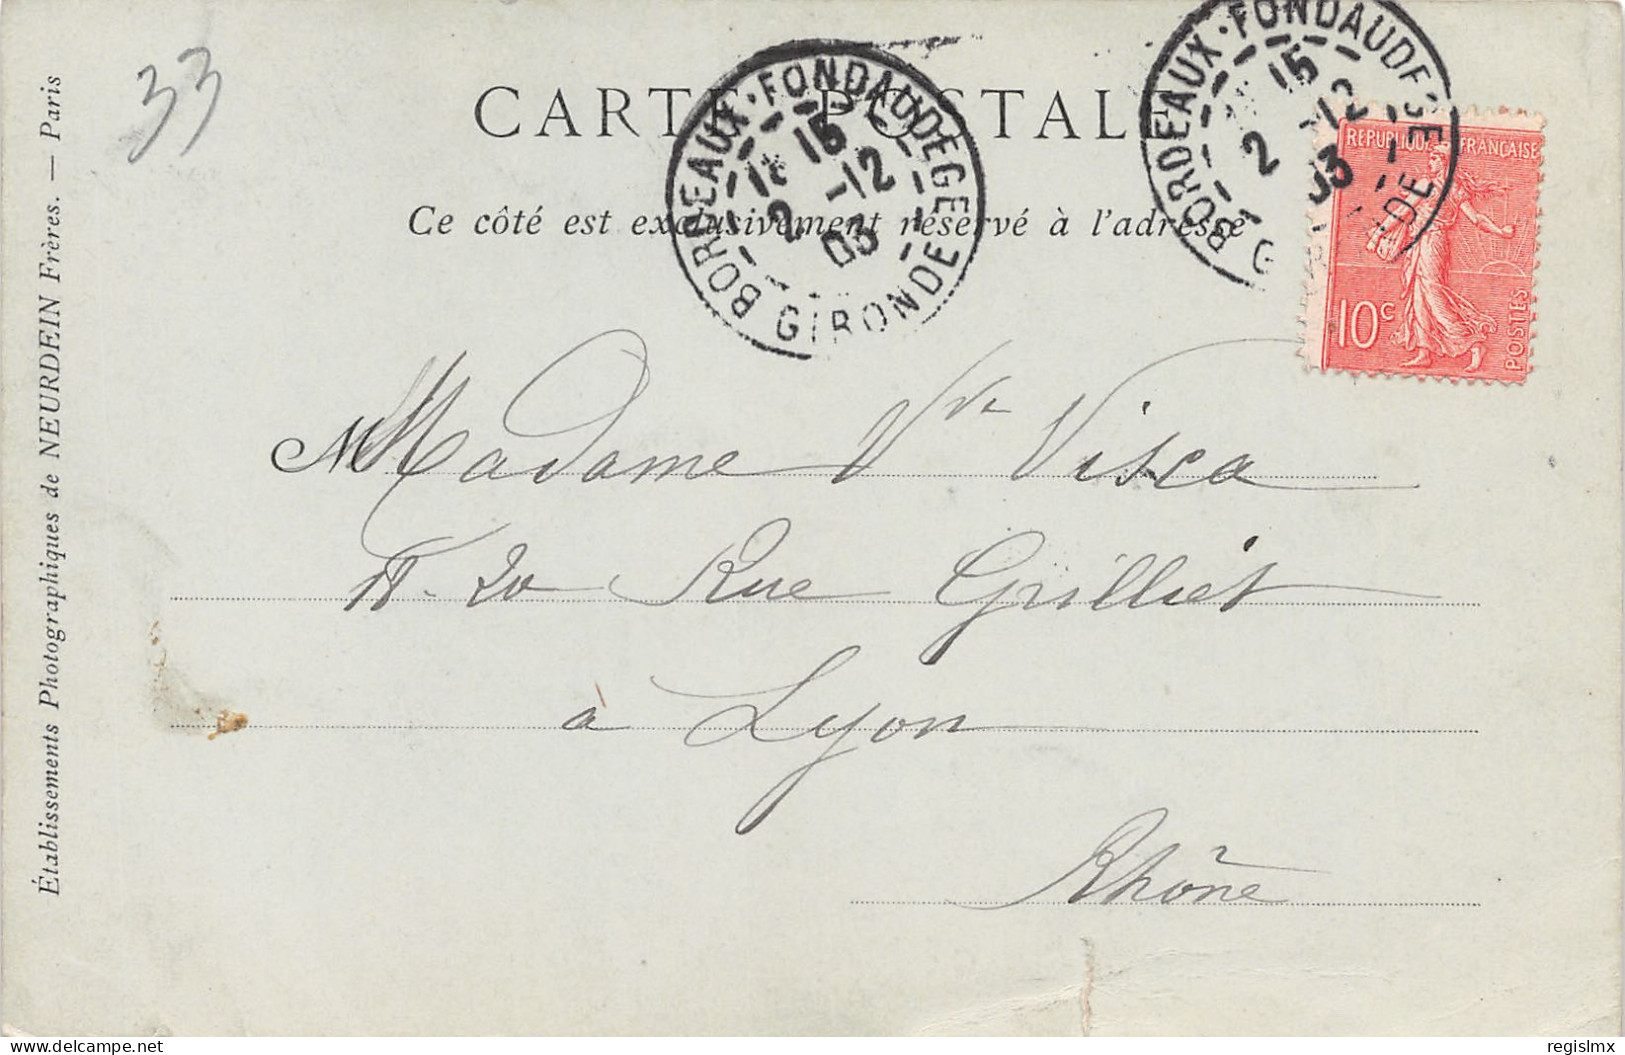 33
CARTE POSTALE
Ce côté est exclusivement réservé à l'adresse
BORDEAUX · FONDAUDEGE
15
2 -12
03
GIRONDE
BORDEAUX · FONDAUDEGE
15
2 -12
03
REPUBLIQUE FRANÇAISE
10 c
POSTES
M Madame Vve Visca
N. 20 Rue Grilliet
à Lyon
Rhône
Établissements Photographiques de NEURDEIN Frères. — Paris
delcampe.net
regislmx